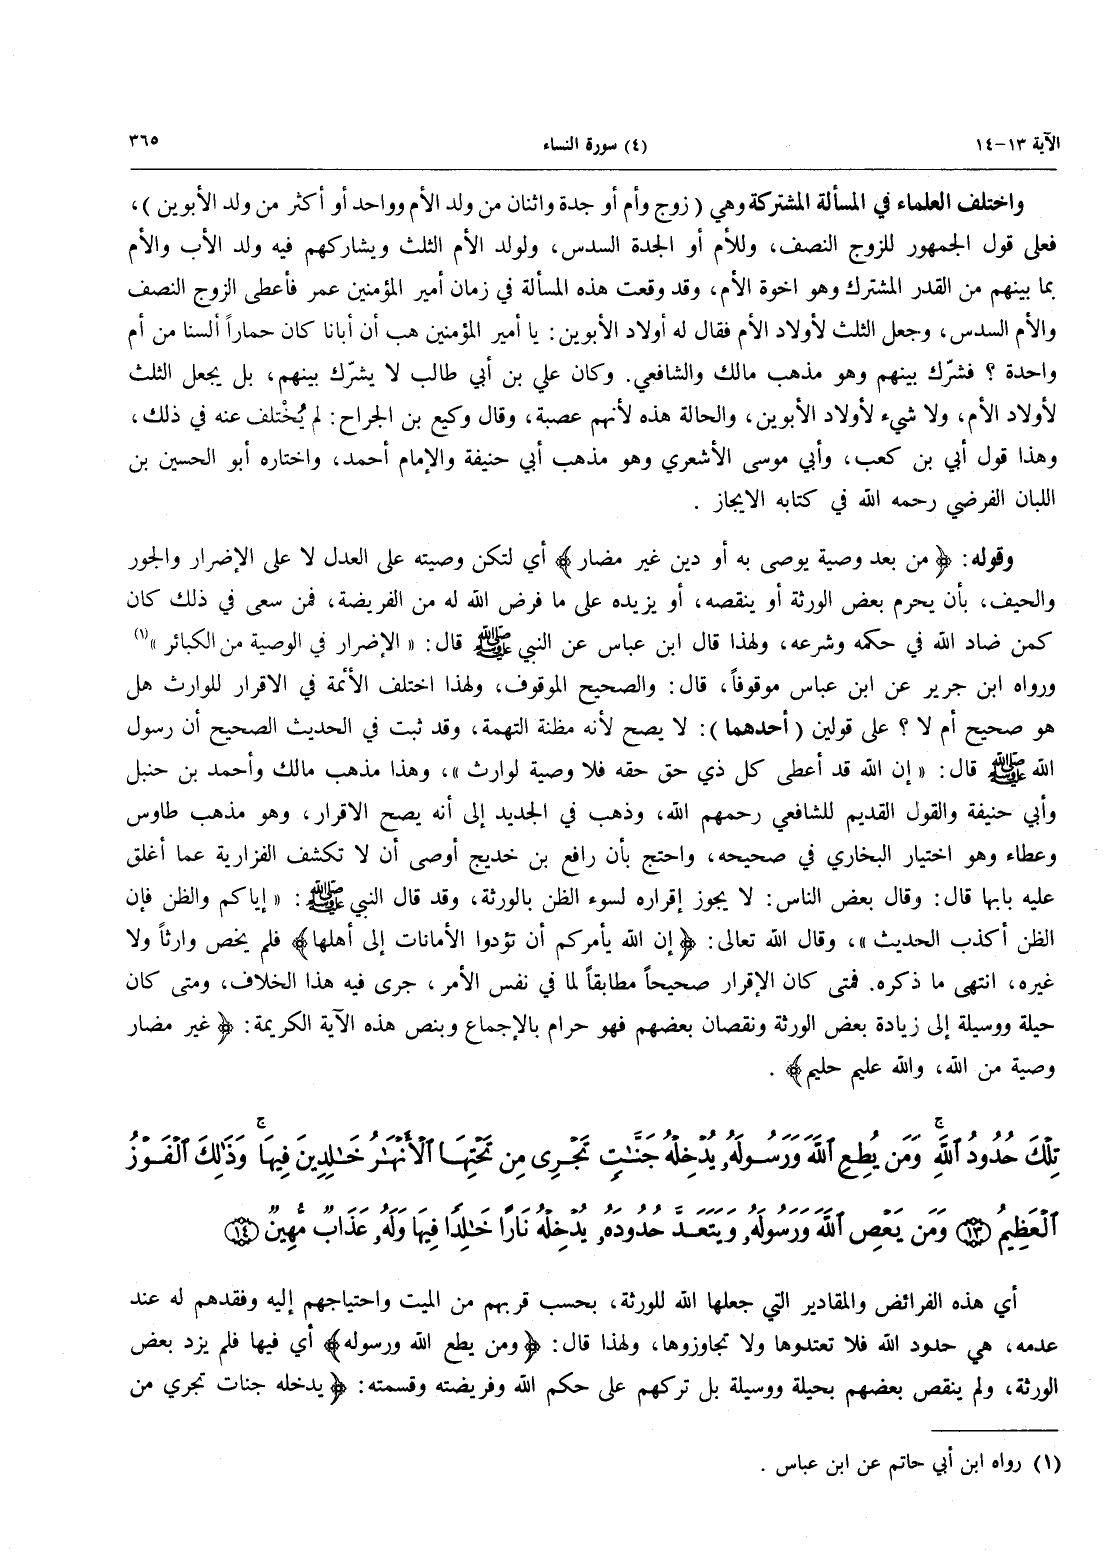 الآية ١٣-١٤
(٤) سورة النساء
٣٦٥
واختلف العلماء في المسألة المشتركة وهي ( زوج وأم أو جدة واثنان من ولد الأم وواحد أو أكثر من ولد الأبوين )،
فعلى قول الجمهور للزوج النصف، وللأم أو الجدة السدس، ولولد الأم الثلث ويشاركهم فيه ولد الأب والأم
بما بينهم من القدر المشترك وهو اخوة الأم، وقد وقعت هذه المسألة في زمان أمير المؤمنين عمر فأعطى الزوج النصف
والأم السدس، وجعل الثلث لأولاد الأم فقال له أولاد الأبوين: يا أمير المؤمنين هب أن أبانا كان حماراً ألسنا من أم
واحدة ؟ فشرّك بينهم وهو مذهب مالك والشافعي. وكان علي بن أبي طالب لا يشرّك بينهم، بل يجعل الثلث
لأولاد الأم، ولا شيء لأولاد الأبوين، والحالة هذه لأنهم عصبة، وقال وكيع بن الجراح: لم يُخْتلف عنه في ذلك،
وهذا قول أبي بن كعب، وأبي موسى الأشعري وهو مذهب أبي حنيفة والإمام أحمد، واختاره أبو الحسين بن
اللبان الفرضي رحمه الله في كتابه الايجاز .
وقوله: ﴿ من بعد وصية يوصى به أو دين غير مضار﴾ أي لتكن وصيته على العدل لا على الإضرار والجور
والحيف، بأن يحرم بعض الورثة أو ينقصه، أو يزيده على ما فرض الله له من الفريضة، فمن سعى في ذلك كان
كمن ضاد الله في حكمه وشرعه، ولهذا قال ابن عباس عن النبي ﷺ قال: « الإضرار في الوصية من الكبائر »(١)
ورواه ابن جرير عن ابن عباس موقوفاً، قال: والصحيح الموقوف، ولهذا اختلف الأئمة في الاقرار للوارث هل
هو صحيح أم لا ؟ على قولين ( أحدهما ): لا يصح لأنه مظنة التهمة، وقد ثبت في الحديث الصحيح أن رسول
الله ﷺ قال: « إن الله قد أعطى كل ذي حق حقه فلا وصية لوارث »، وهذا مذهب مالك وأحمد بن حنبل
وأبي حنيفة والقول القديم للشافعي رحمهم الله، وذهب في الجديد إلى أنه يصح الاقرار، وهو مذهب طاوس
وعطاء وهو اختيار البخاري في صحيحه، واحتج بأن رافع بن خديج أوصى أن لا تكشف الفزارية عما أغلق
عليه بابها قال: وقال بعض الناس: لا يجوز إقراره لسوء الظن بالورثة، وقد قال النبي ﷺ: « إياكم والظن فإن
الظن أكذب الحديث »، وقال الله تعالى: ﴿ إن الله يأمركم أن تؤدوا الأمانات إلى أهلها﴾ فلم يخص وارثاً ولا
غيره، انتهى ما ذكره. فمتى كان الإقرار صحيحاً مطابقاً لما في نفس الأمر، جرى فيه هذا الخلاف، ومتى كان
حيلة ووسيلة إلى زيادة بعض الورثة ونقصان بعضهم فهو حرام بالإجماع وبنص هذه الآية الكريمة: ﴿ غير مضار
وصية من الله، والله عليم حليم﴾ .
تِلۡكَ حُدُودُ ٱللَّهِۚ وَمَن يُطِعِ ٱللَّهَ وَرَسُولَهُۥ يُدۡخِلۡهُ جَنَّٰتٖ تَجۡرِى مِن تَحۡتِهَا ٱلۡأَنۡهَٰرُ خَٰلِدِينَ فِيهَاۚ وَذَٰلِكَ ٱلۡفَوۡزُ
ٱلۡعَظِيمُ ۝١٣ وَمَن يَعۡصِ ٱللَّهَ وَرَسُولَهُۥ وَيَتَعَدَّ حُدُودَهُۥ يُدۡخِلۡهُ نَارًا خَٰلِدٗا فِيهَا وَلَهُۥ عَذَابٞ مُّهِينٞ ۝١٤
أي هذه الفرائض والمقادير التي جعلها الله للورثة، بحسب قربهم من الميت واحتياجهم إليه وفقدهم له عند
عدمه، هي حدود الله فلا تعتدوها ولا تجاوزوها، ولهذا قال: ﴿ ومن يطع الله ورسوله﴾ أي فيها فلم يزد بعض
الورثة، ولم ينقص بعضهم بحيلة ووسيلة بل تركهم على حكم الله وفريضته وقسمته: ﴿ يدخله جنات تجري من
(١) رواه ابن أبي حاتم عن ابن عباس .